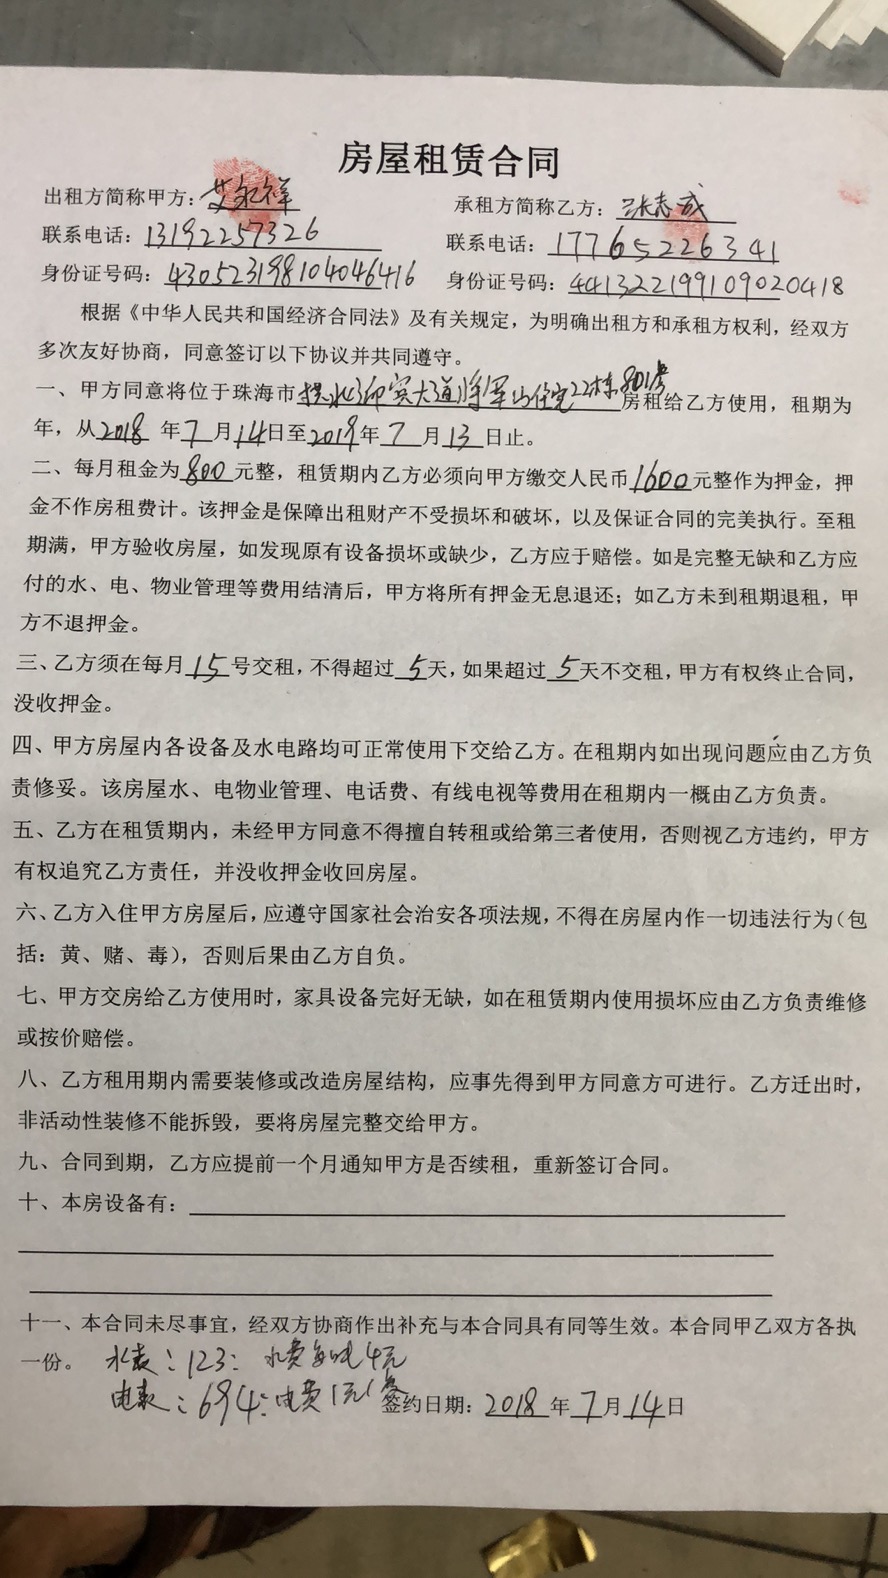 房屋租赁合同
出租方简称甲方：艾祥 承租方简称乙方：张志成
联系电话：13192257326 联系电话：17765226341
身份证号码：430523198104046416 身份证号码：441322199109020418
根据《中华人民共和国经济合同法》及有关规定，为明确出租方和承租方权利，经双方
多次友好协商，同意签订以下协议并共同遵守。
一、甲方同意将位于珠海市拱北迎宾大道将军山住宅22栋801房房租给乙方使用，租期为
年，从2018 年7月14日至2019年7月13日止。
二、每月租金为800元整，租赁期内乙方必须向甲方缴交人民币1600元整作为押金，押
金不作房租费计。该押金是保障出租财产不受损坏和破坏，以及保证合同的完美执行。至租
期满，甲方验收房屋，如发现原有设备损坏或缺少，乙方应于赔偿。如是完整无缺和乙方应
付的水、电、物业管理等费用结清后，甲方将所有押金无息退还；如乙方未到租期退租，甲
方不退押金。
三、乙方须在每月15号交租，不得超过5天，如果超过5天不交租，甲方有权终止合同，
没收押金。
四、甲方房屋内各设备及水电路均可正常使用下交给乙方。在租期内如出现问题应由乙方负
责修妥。该房屋水、电物业管理、电话费、有线电视等费用在租期内一概由乙方负责。
五、乙方在租赁期内，未经甲方同意不得擅自转租或给第三者使用，否则视乙方违约，甲方
有权追究乙方责任，并没收押金收回房屋。
六、乙方入住甲方房屋后，应遵守国家社会治安各项法规，不得在房屋内作一切违法行为（包
括：黄、赌、毒），否则后果由乙方自负。
七、甲方交房给乙方使用时，家具设备完好无缺，如在租赁期内使用损坏应由乙方负责维修
或按价赔偿。
八、乙方租用期内需要装修或改造房屋结构，应事先得到甲方同意方可进行。乙方迁出时，
非活动性装修不能拆毁，要将房屋完整交给甲方。
九、合同到期，乙方应提前一个月通知甲方是否续租，重新签订合同。
十、本房设备有：
十一、本合同未尽事宜，经双方协商作出补充与本合同具有同等生效。本合同甲乙双方各执
一份。 水表：123： 水费每吨4元
电表：694：电费1元1度 签约日期：2018年7月14日